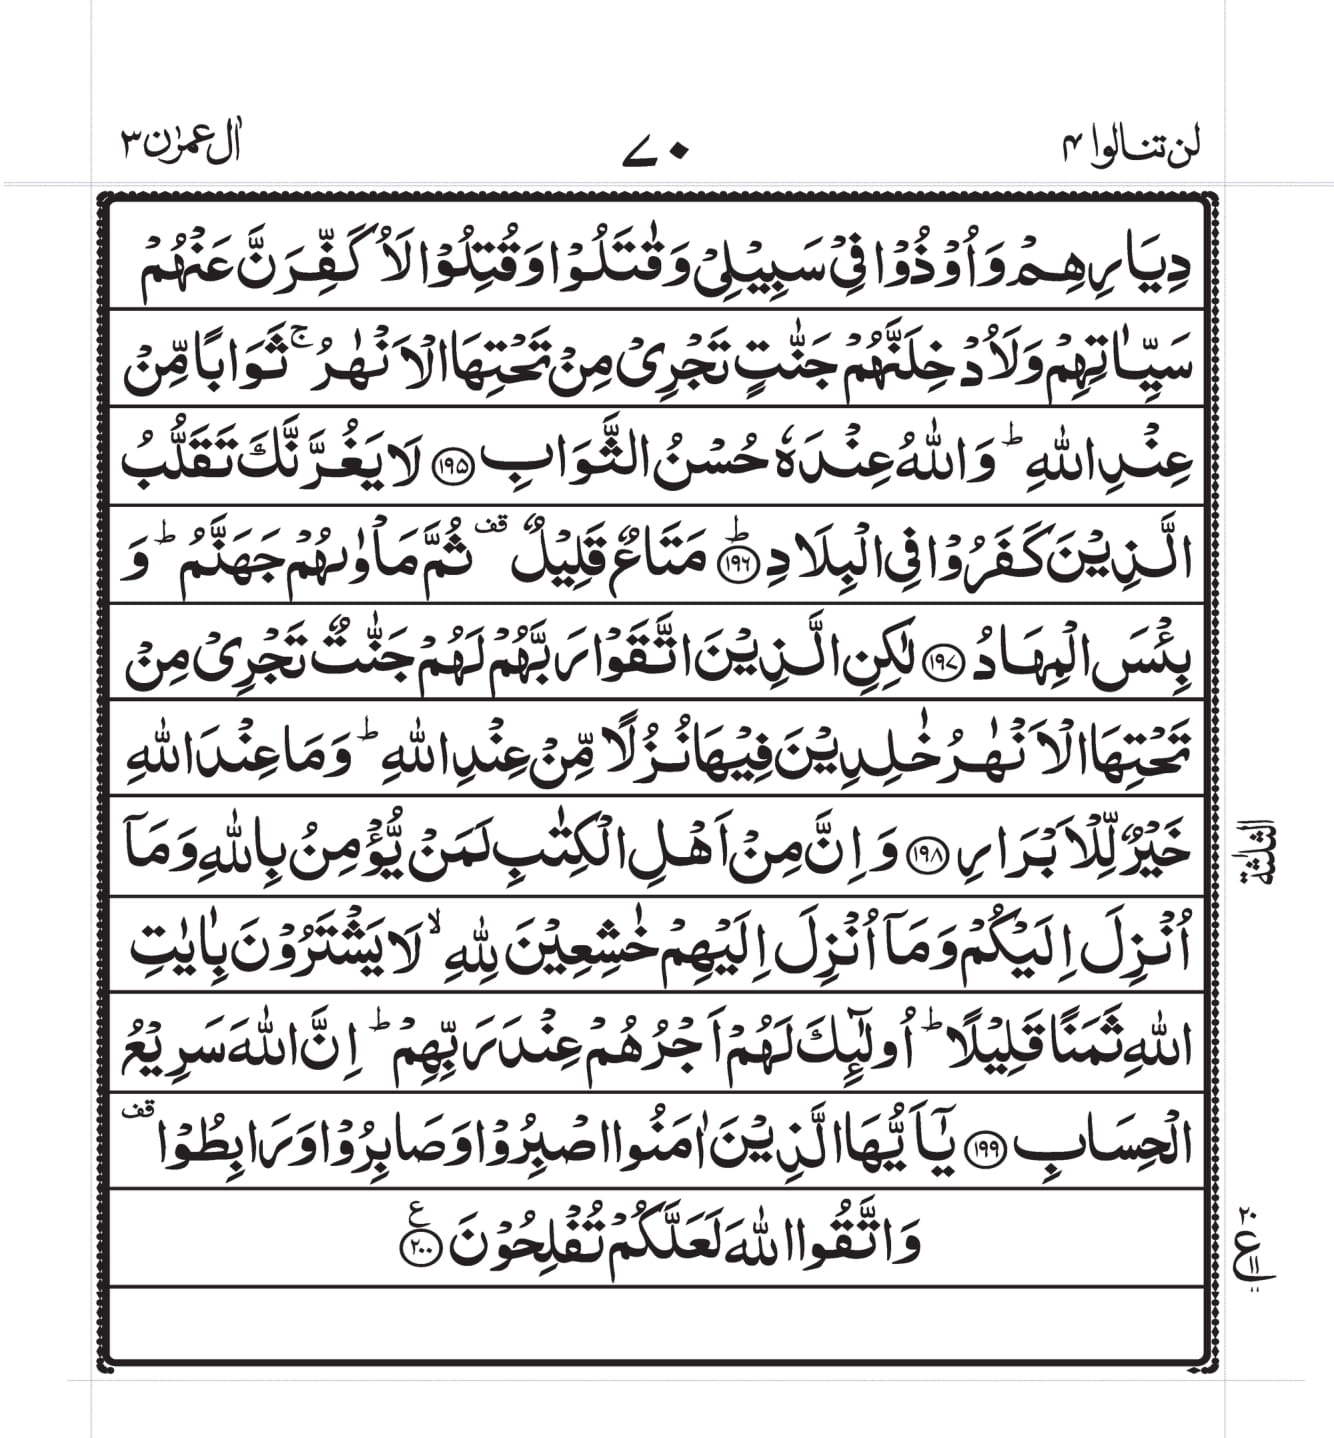 لن تنالوا ۴
۷۰
اٰل عمرٰن ۳
دِيَارِهِمْ وَاُوْذُوْا فِيْ سَبِيْلِيْ وَقٰتَلُوْا وَقُتِلُوْا لَاُكَفِّرَنَّ عَنْهُمْ
سَيِّاٰتِهِمْ وَلَاُدْخِلَنَّهُمْ جَنّٰتٍ تَجْرِيْ مِنْ تَحْتِهَا الْاَنْهٰرُ ۚ ثَوَابًا مِّنْ
عِنْدِ اللّٰهِ ؕ وَاللّٰهُ عِنْدَهٗ حُسْنُ الثَّوَابِ ﴿۱۹۵﴾ لَا يَغُرَّنَّكَ تَقَلُّبُ
الَّذِيْنَ كَفَرُوْا فِي الْبِلَادِ ؕ﴿۱۹۶﴾ مَتَاعٌ قَلِيْلٌ قف ثُمَّ مَاْوٰىهُمْ جَهَنَّمُ ؕ وَ
بِئْسَ الْمِهَادُ ﴿۱۹۷﴾ لٰكِنِ الَّذِيْنَ اتَّقَوْا رَبَّهُمْ لَهُمْ جَنّٰتٌ تَجْرِيْ مِنْ
تَحْتِهَا الْاَنْهٰرُ خٰلِدِيْنَ فِيْهَا نُزُلًا مِّنْ عِنْدِ اللّٰهِ ؕ وَمَا عِنْدَ اللّٰهِ
خَيْرٌ لِّلْاَبْرَارِ ﴿۱۹۸﴾ وَاِنَّ مِنْ اَهْلِ الْكِتٰبِ لَمَنْ يُّؤْمِنُ بِاللّٰهِ وَمَاۤ
الثلٰثة
اُنْزِلَ اِلَيْكُمْ وَمَاۤ اُنْزِلَ اِلَيْهِمْ خٰشِعِيْنَ لِلّٰهِ ۙ لَا يَشْتَرُوْنَ بِاٰيٰتِ
اللّٰهِ ثَمَنًا قَلِيْلًا ؕ اُولٰٓئِكَ لَهُمْ اَجْرُهُمْ عِنْدَ رَبِّهِمْ ؕ اِنَّ اللّٰهَ سَرِيْعُ
الْحِسَابِ ﴿۱۹۹﴾ يٰۤاَيُّهَا الَّذِيْنَ اٰمَنُوا اصْبِرُوْا وَصَابِرُوْا وَرَابِطُوْا قف
وَاتَّقُوا اللّٰهَ لَعَلَّكُمْ تُفْلِحُوْنَ ﴿۲۰۰﴾ ع
۲۰
ع
۱۱